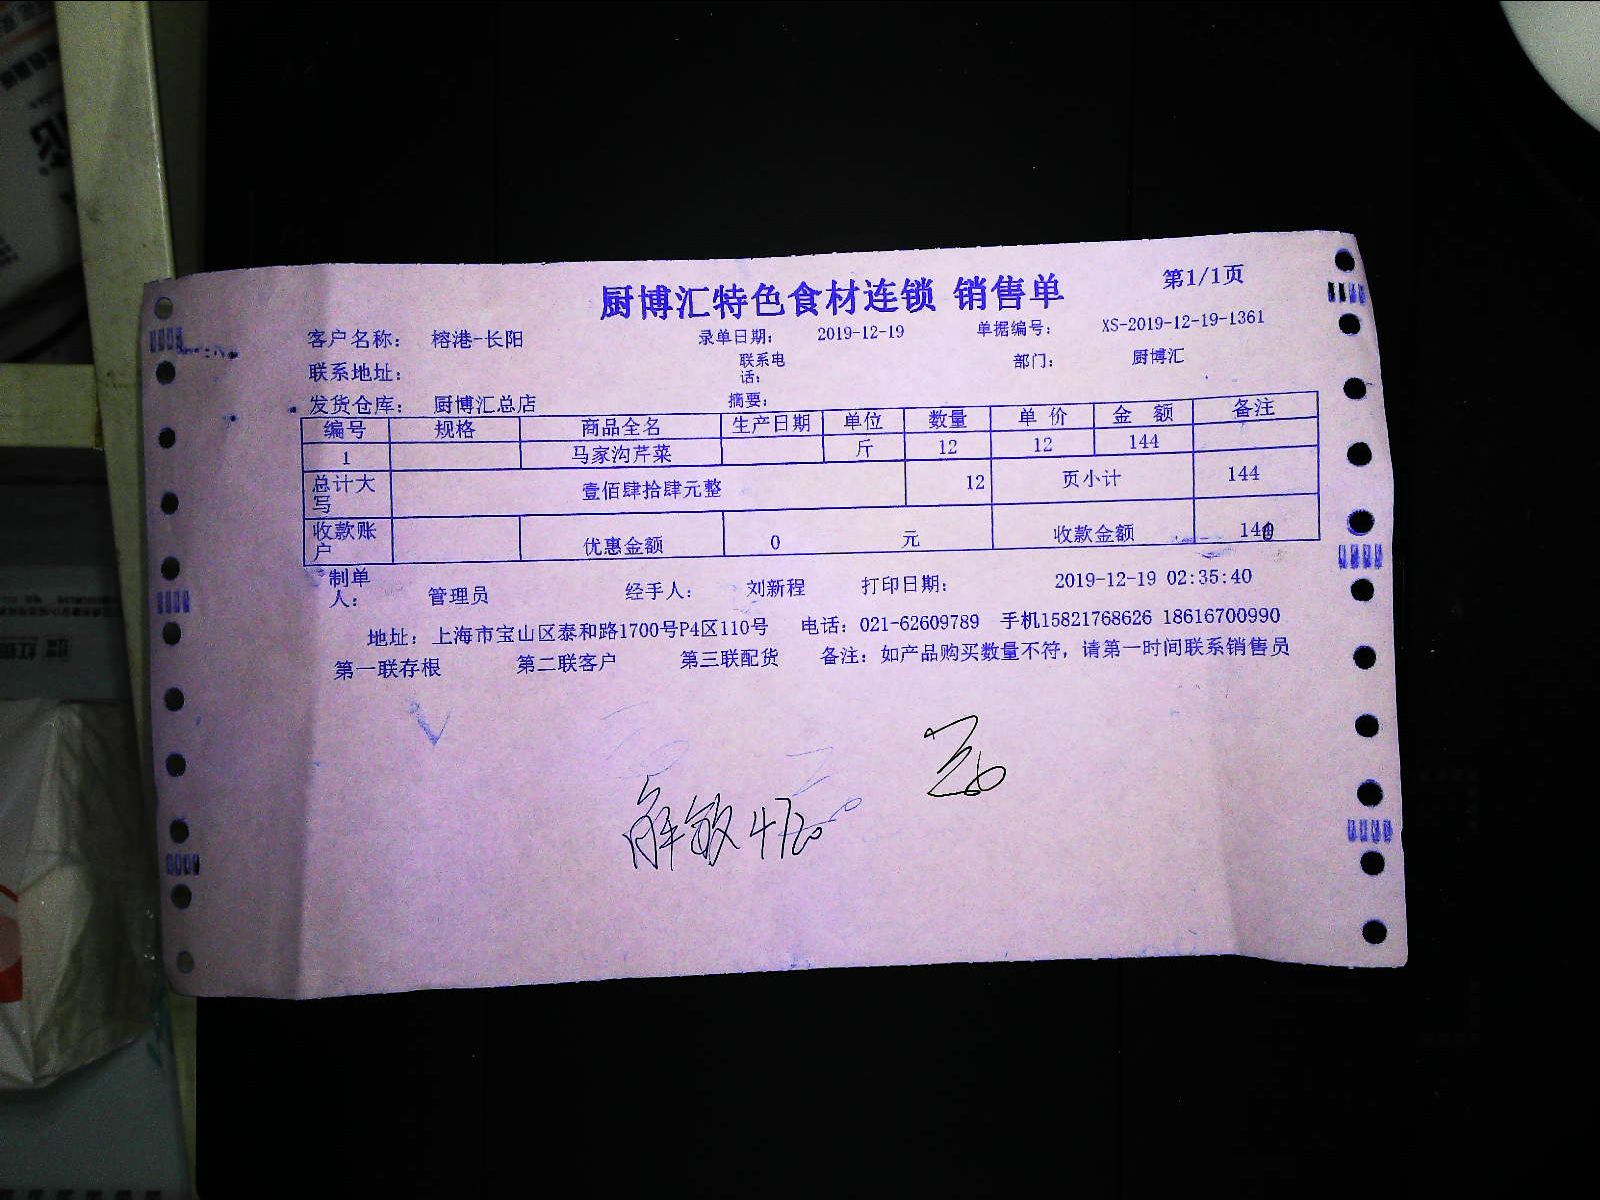 厨博汇特色食材连锁 销售单 第1/1页
客户名称: 榕港-长阳 录单日期: 2019-12-19 单据编号: XS-2019-12-19-1361
联系地址: 联系电话: 部门: 厨博汇
发货仓库: 厨博汇总店 摘要:
编号 规格 商品全名 生产日期 单位 数量 单 价 金 额 备注
1 马家沟芹菜 斤 12 12 144
总计大写 壹佰肆拾肆元整 12 页小计 144
收款账户 优惠金额 0 元 收款金额
制单人: 管理员 经手人: 刘新程 打印日期: 2019-12-19 02:35:40
地址: 上海市宝山区泰和路1700号P4区110号 电话: 021-62609789 手机15821768626 18616700990
第一联存根 第二联客户 第三联配货 备注: 如产品购买数量不符, 请第一时间联系销售员